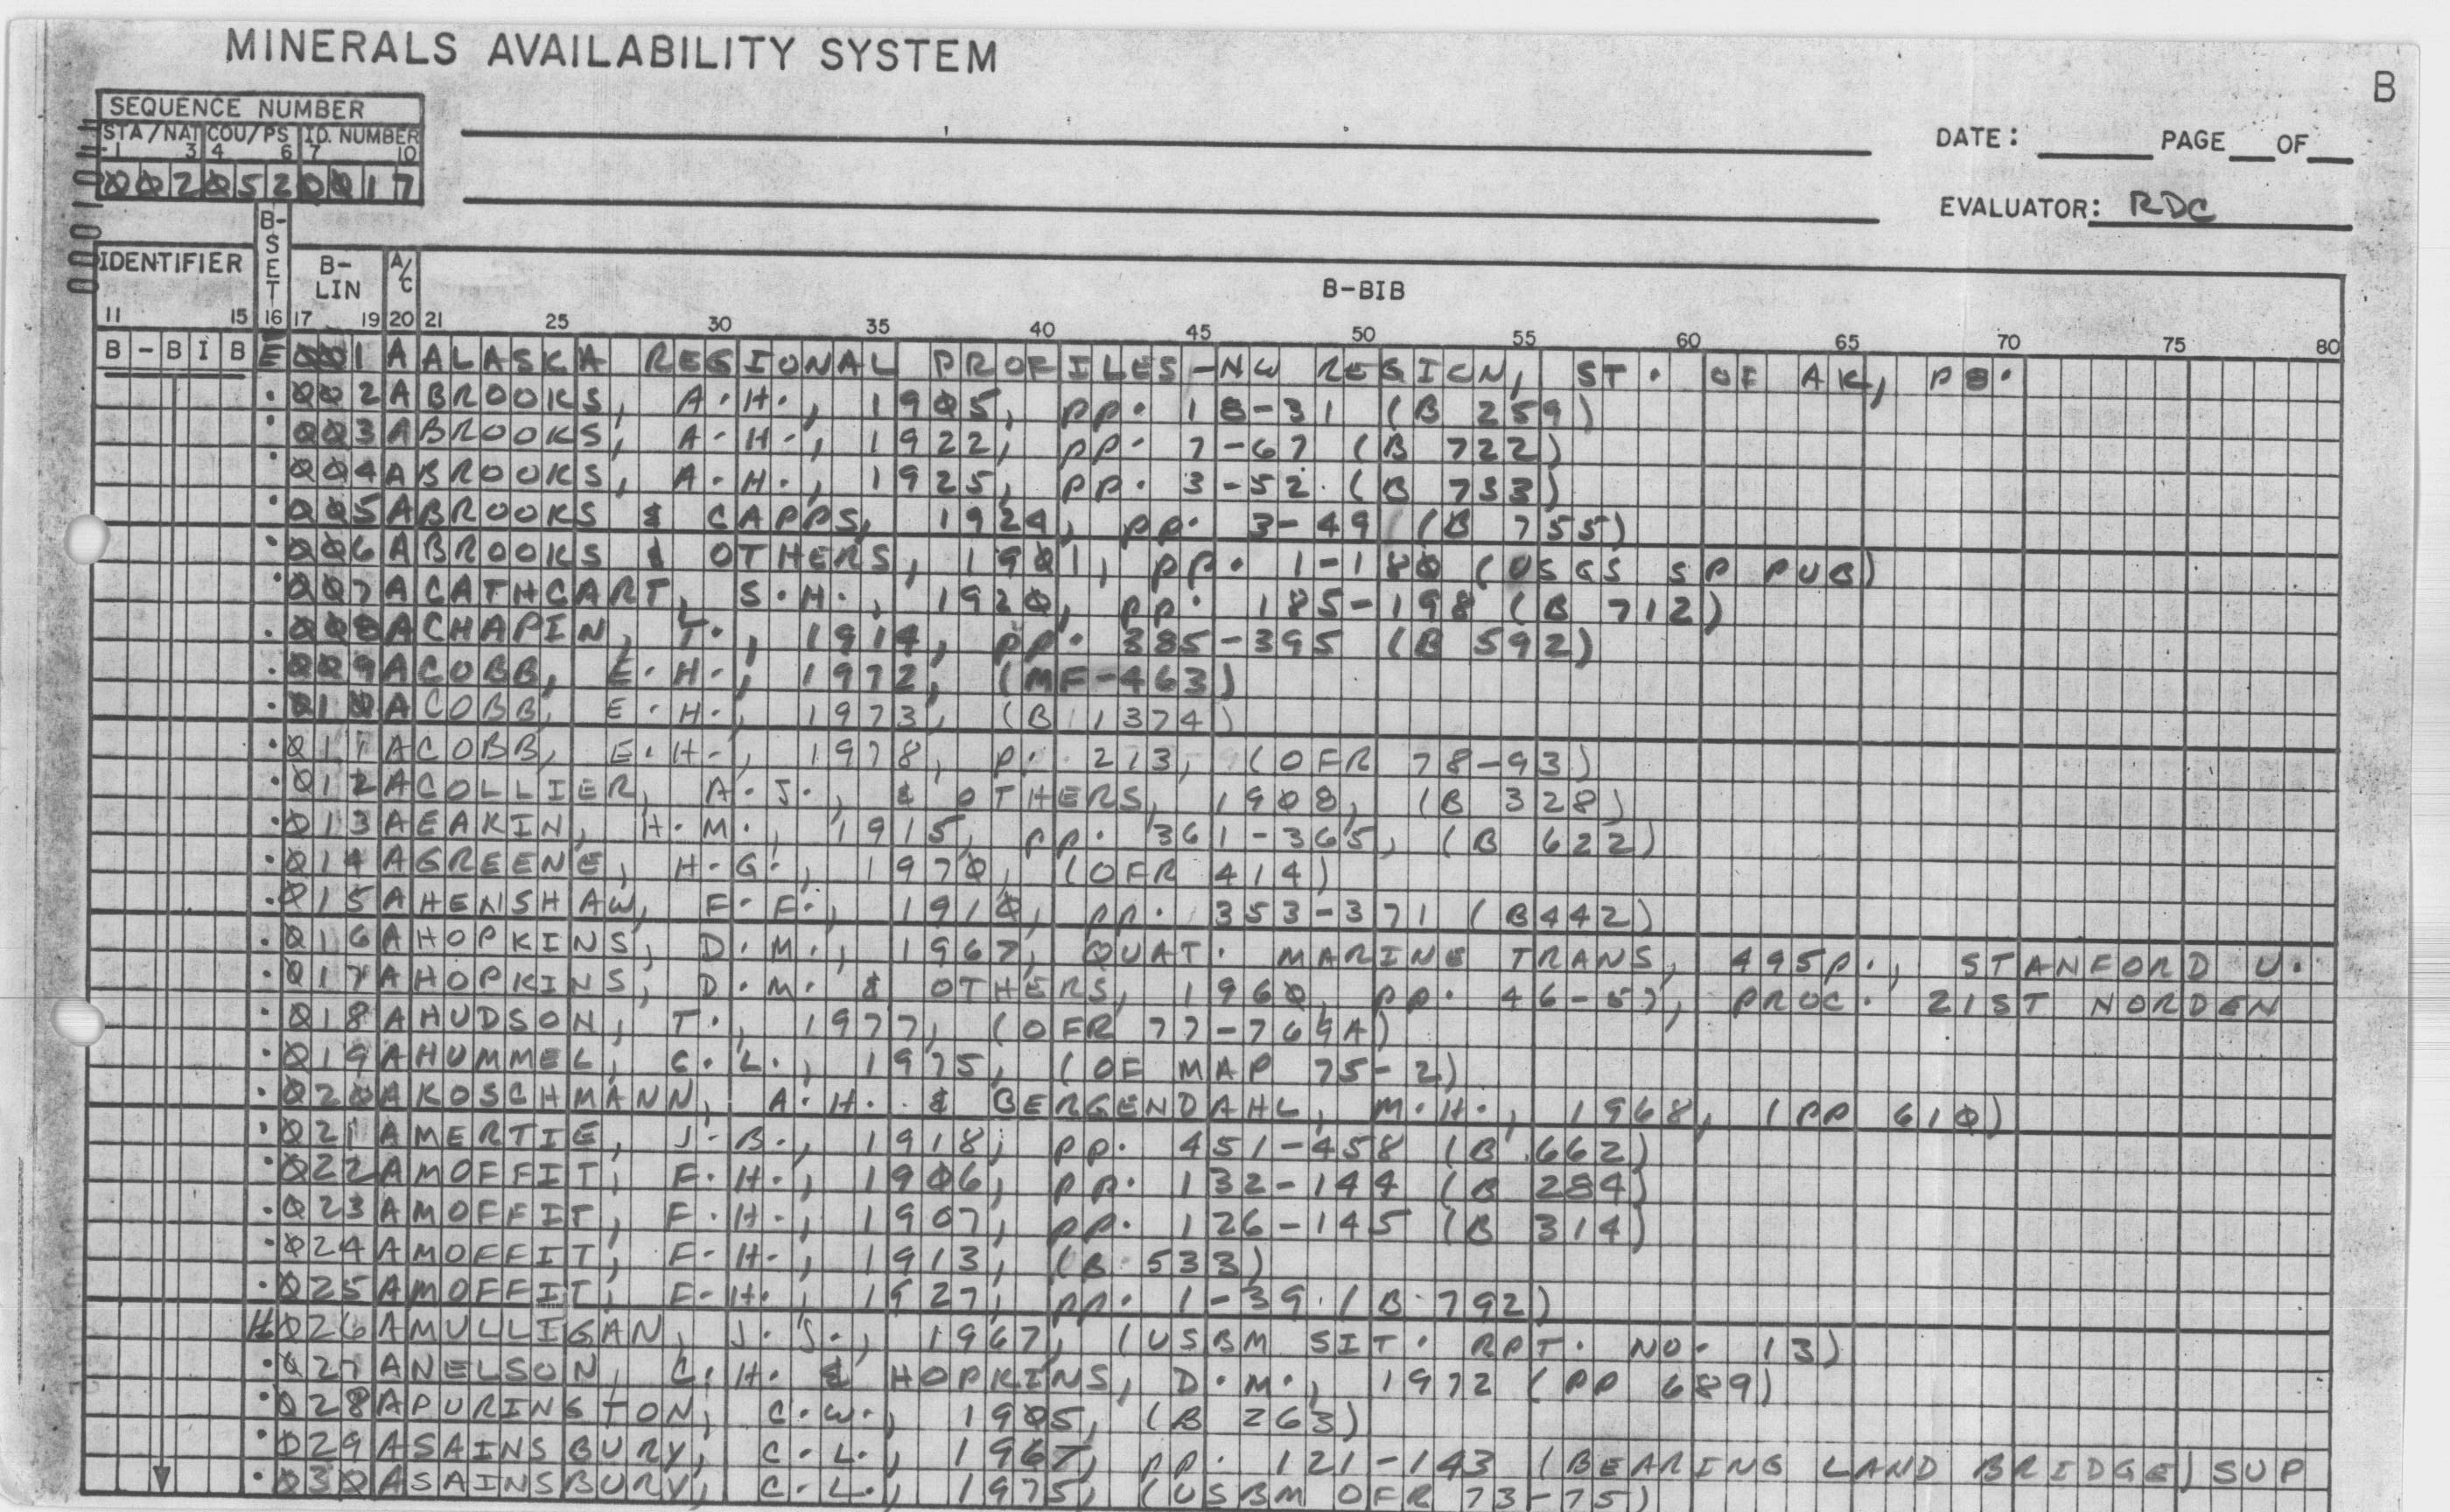 MINERALS AVAILABILITY SYSTEM
B
SEQUENCE NUMBER
STA/NAT COU/PS I.D. NUMBER
1 3 4 6 7 10
0020520017
DATE: PAGE OF
EVALUATOR: RDC
IDENTIFIER B-SET B-LIN A/C B-BIB
11 15 16 17 19 20 21 25 30 35 40 45 50 55 60 65 70 75 80
B-BIB E 001 A ALASKA REGIONAL PROFILES-NW REGION, ST. OF AK,
002 A BROOKS, A.H., 1905, pp. 18-31 (B 259)
003 A BROOKS, A.H., 1922, pp. 7-67 (B 722)
004 A BROOKS, A.H., 1925, pp. 3-52 (B 733)
005 A BROOKS & CAPPS, 1924, pp. 3-49 (B 755)
006 A BROOKS & OTHERS, 1901, pp. 1-180 (USGS SP PUB)
007 A CATHCART, S.H., 1920, pp. 185-198 (B 712)
008 A CHAPIN, T., 1914, pp. 385-395 (B 592)
009 A COBB, E.H., 1972, (MF-463)
010 A COBB, E.H., 1973, (B 1374)
011 A COBB, E.H., 1978, p. 213, (OFR 78-93)
012 A COLLIER, A.J., & OTHERS, 1908, (B 328)
013 A EAKIN, H.M., 1915, pp. 361-365, (B 622)
014 A GREENE, H.G., 1970, (OFR 414)
015 A HENSHAW, F.F., 1910, pp. 353-371 (B442)
016 A HOPKINS, D.M., 1967, QUAT. MARINE TRANS, 495p., STANFORD U.
017 A HOPKINS, D.M. & OTHERS, 1960, pp. 46-57, PROC. 21ST NORDEN
018 A HUDSON, T., 1977, (OFR 77-769A)
019 A HUMMEL, C.L., 1975, (OF MAP 75-2)
020 A KOSCHMANN, A.H. & BERGENDAHL, M.H., 1968, (PP 610)
021 A MERTIE, J.B., 1918, pp. 451-458 (B 662)
022 A MOFFIT, F.H., 1906, pp. 132-144 (B 284)
023 A MOFFIT, F.H., 1907, pp. 126-145 (B 314)
024 A MOFFIT, F.H., 1913, (B 533)
025 A MOFFIT, F.H., 1927, pp. 1-39. (B 792)
H 026 A MULLIGAN, J.J., 1967, (USBM SIT. RPT. NO. 13)
027 A NELSON, C.H. & HOPKINS, D.M., 1972 (PP 689)
028 A PURINGTON, C.W., 1905, (B 263)
029 A SAINSBURY, C.L., 1967, pp. 121-143 (BEARING LAND BRIDGE) SUP
030 A SAINSBURY, C.L., 1975, (USBM OFR 73-75)